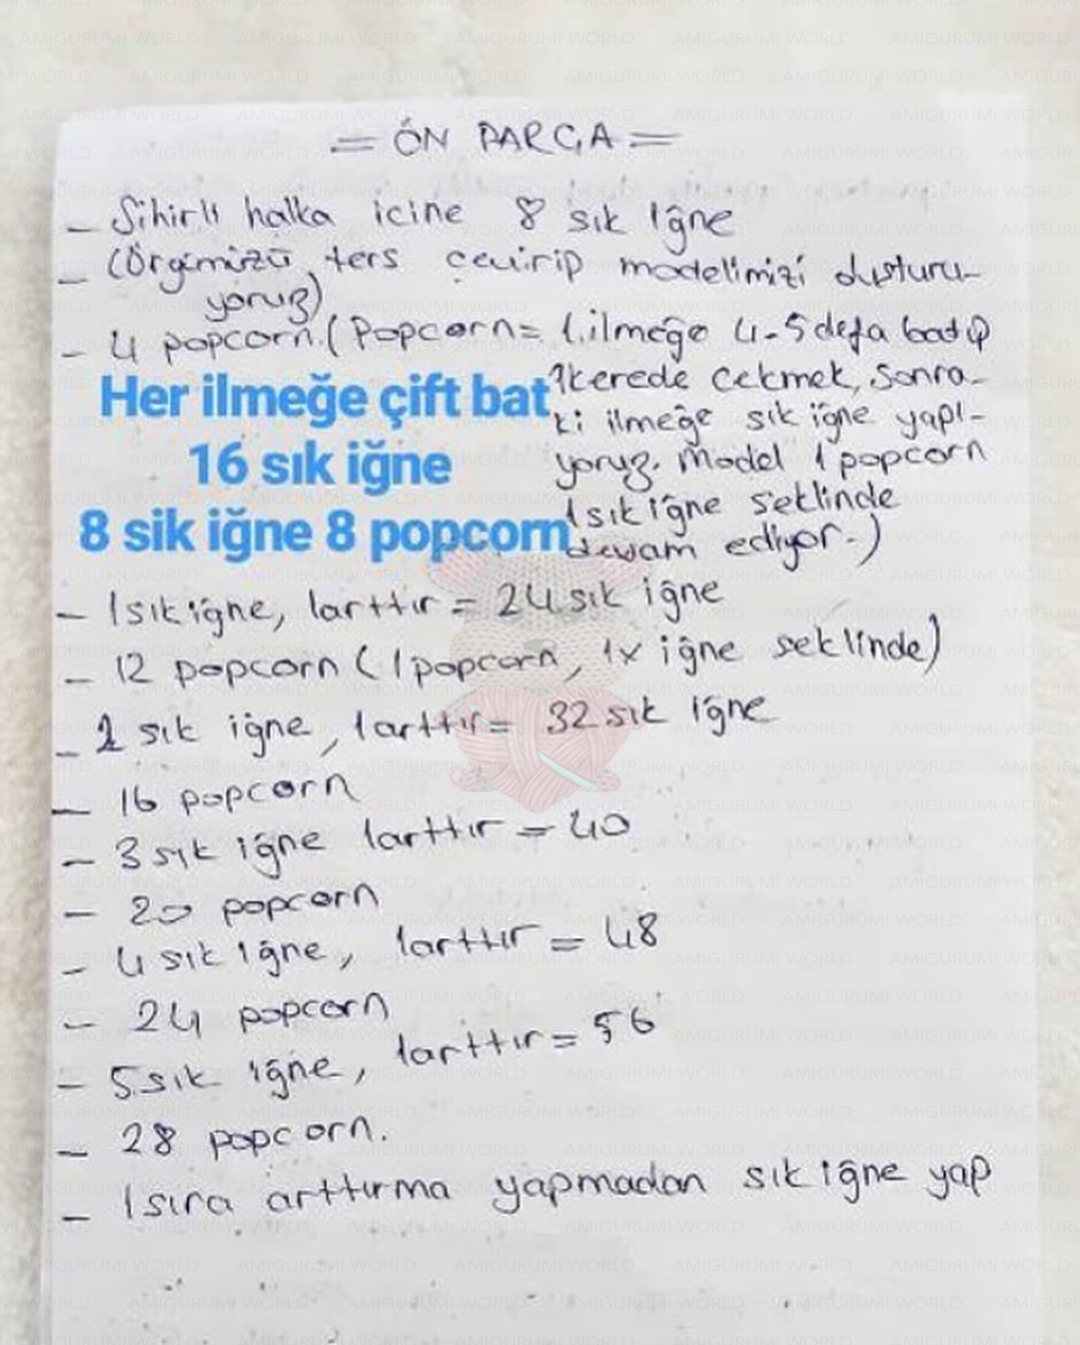 = ÖN PARÇA =
- Sihirli halka icine 8 sık iğne
- (Örgümüzü ters çevirip modelimizi oluşturu-
yoruz)
- 4 popcorn (Popcorn= 1.ilmeğe 4-5 defa batıp
1kerede cekmek, sonra-
ki ilmeğe sık iğne yapı-
yoruz. Model 1 popcorn
1 sık iğne seklinde
devam ediyor.)
Her ilmeğe çift bat
16 sık iğne
8 sik iğne 8 popcorn
- 1 sık iğne, 1arttır = 24 sık iğne
- 12 popcorn (1 popcorn, 1x iğne seklinde)
- 2 sık iğne, 1arttır = 32 sık iğne
- 16 popcorn
- 3 sık iğne 1arttır = 40
- 20 popcorn
- 4 sık iğne, 1arttır = 48
- 24 popcorn
- 5 sık iğne, 1arttır = 56
- 28 popcorn.
- 1 sıra arttırma yapmadan sık iğne yap
AMIGURUMI WORLD